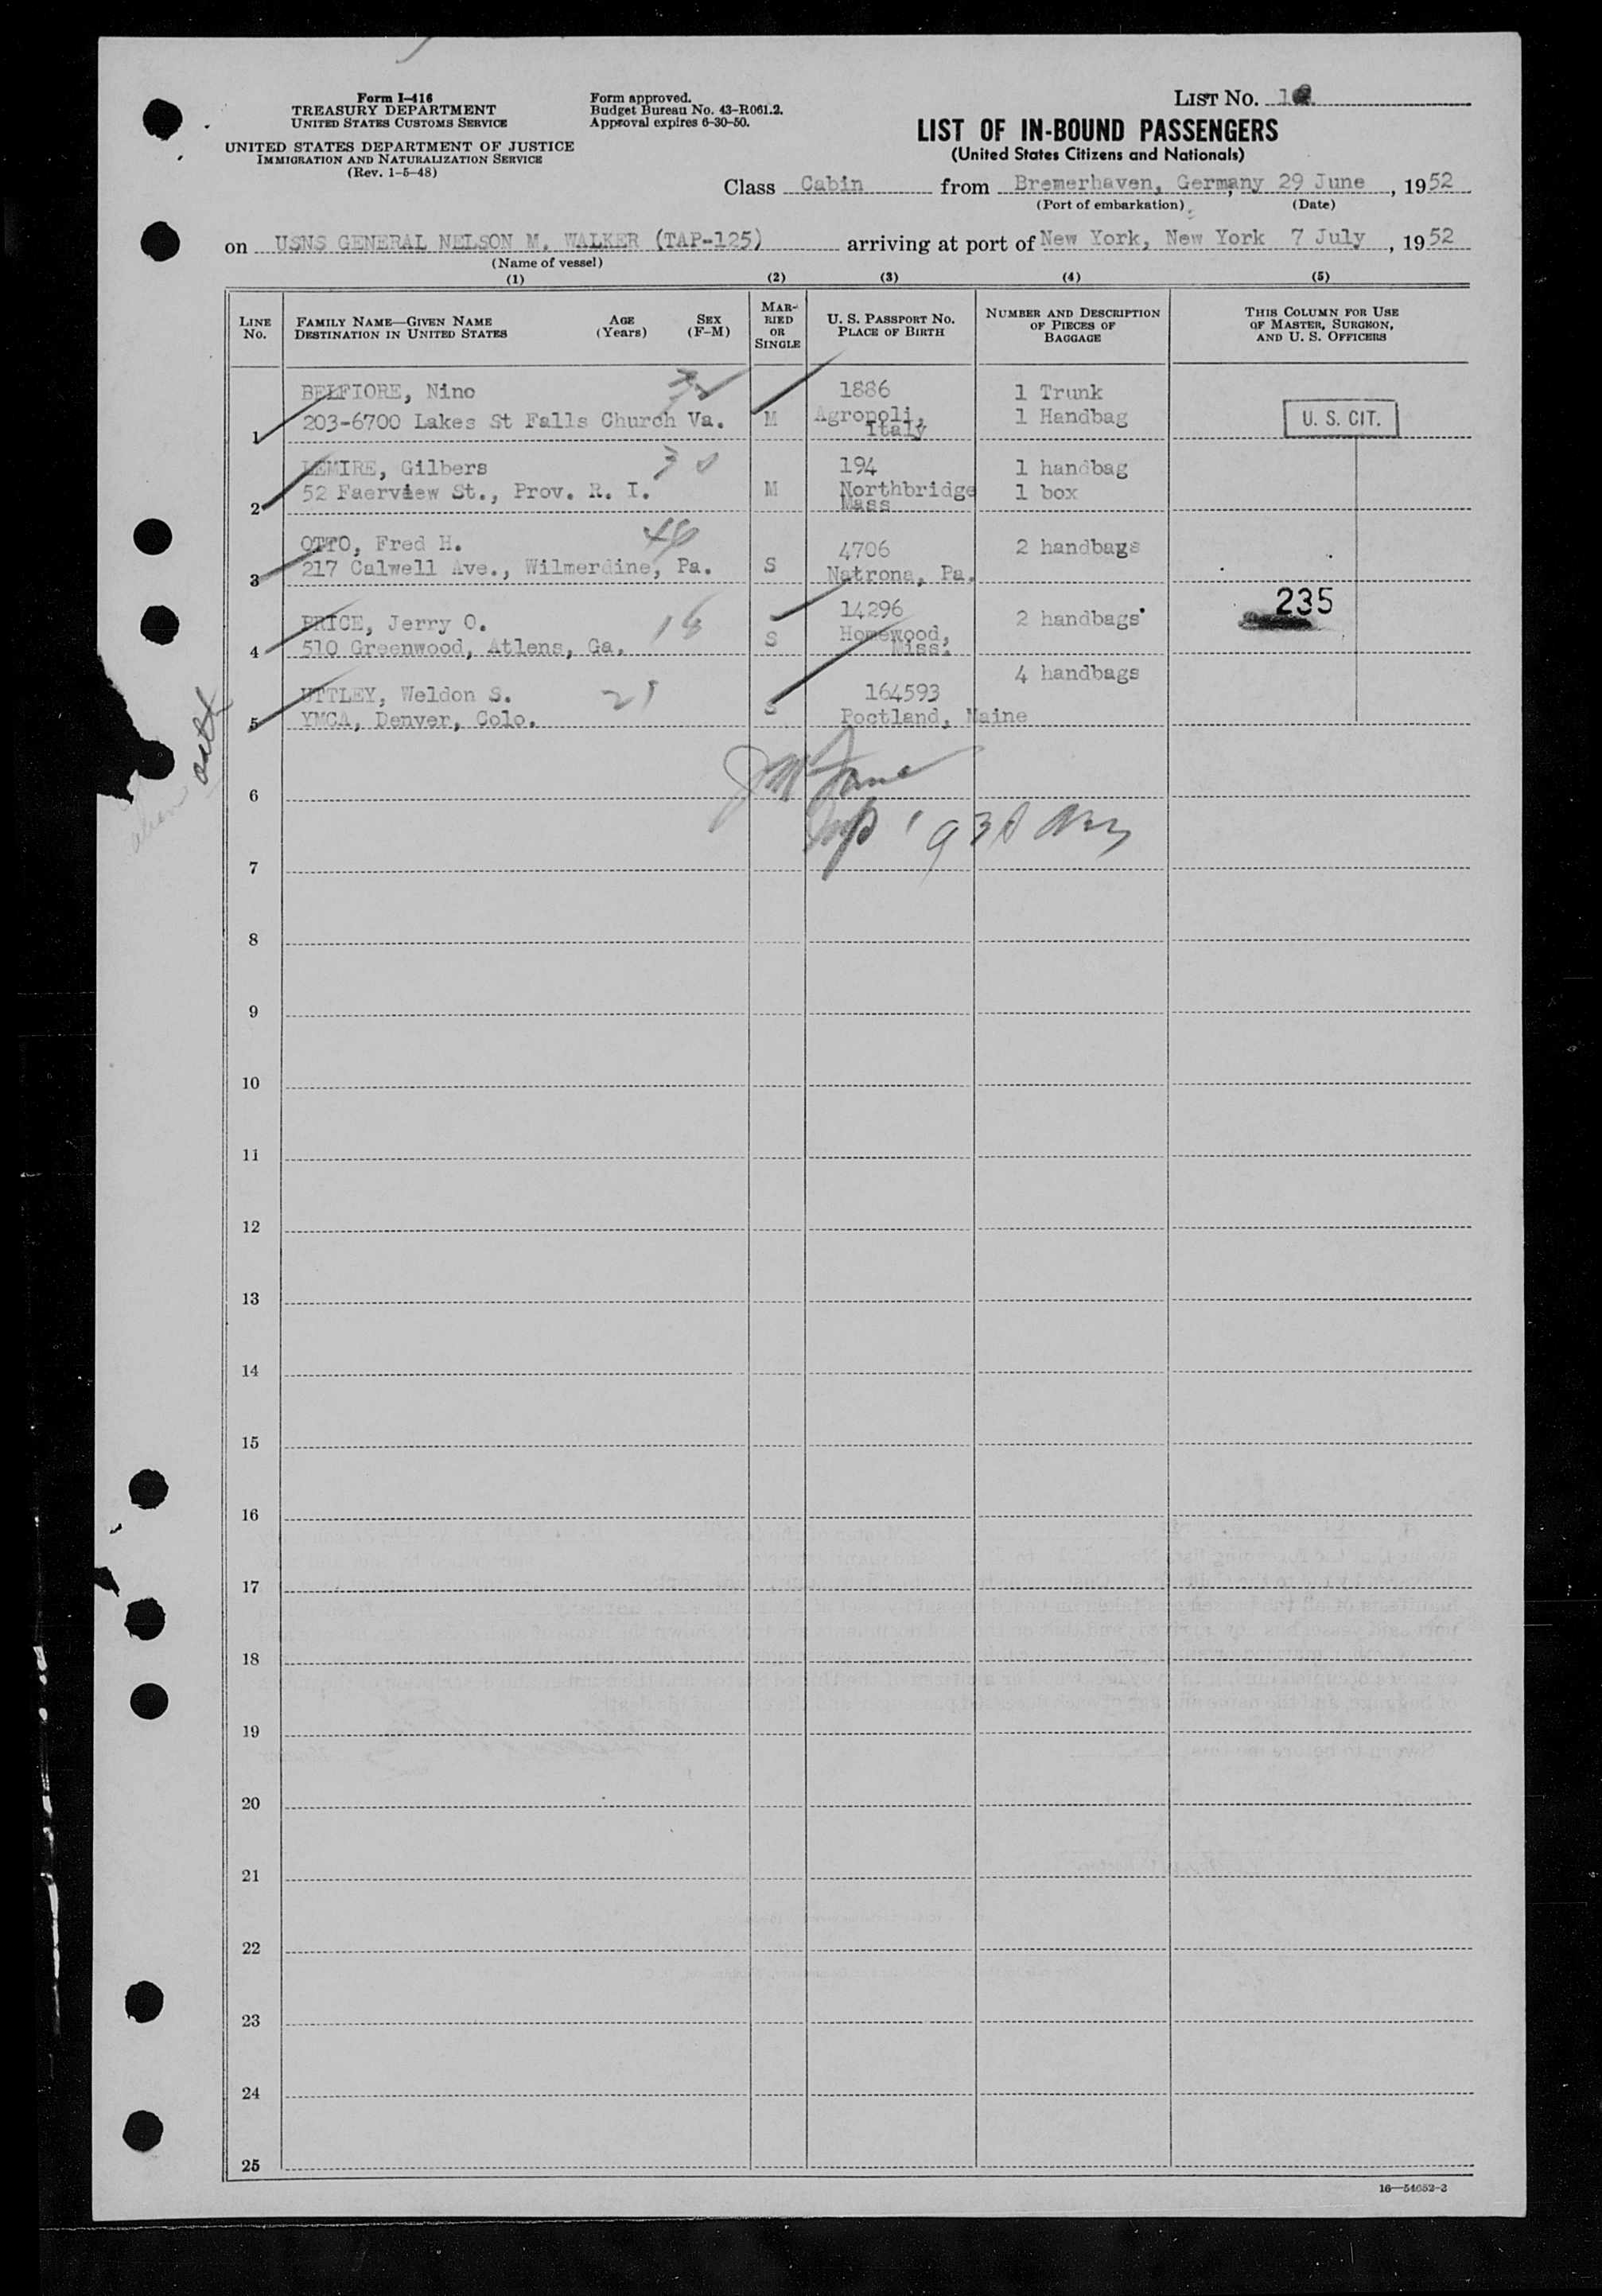 Form I-416
TREASURY DEPARTMENT
UNITED STATES CUSTOMS SERVICE
UNITED STATES DEPARTMENT OF JUSTICE
IMMIGRATION AND NATURALIZATION SERVICE
(Rev. 1-5-48)
Form approved.
Budget Bureau No. 43-R061.2.
Approval expires 6-30-50.
LIST No.
LIST OF IN-BOUND PASSENGERS
(United States Citizens and Nationals)
Class Cabin from Bremerhaven, Germany, 29 June, 1952
(Port of embarkation) (Date)
on USNS GENERAL NELSON M. WALKER (TAP-125) arriving at port of New York, New York 7 July, 1952
(Name of vessel)
(1) (2) (3) (4) (5)
LINE No.
FAMILY NAME—GIVEN NAME
DESTINATION IN UNITED STATES
AGE (Years)
SEX (F-M)
MARRIED OR SINGLE
U. S. PASSPORT NO.
PLACE OF BIRTH
NUMBER AND DESCRIPTION OF PIECES OF BAGGAGE
THIS COLUMN FOR USE OF MASTER, SURGEON, AND U. S. OFFICERS
BELFIORE, Nino 1886 1 Trunk
1 203-6700 Lakes St Falls Church Va. M Agropoli, Italy 1 Handbag U. S. CIT.
LEMIRE, Gilbers 30 194 1 handbag
2 52 Faerview St., Prov. R. I. M Northbridge Mass 1 box
OTTO, Fred H. 46 4706 2 handbags
3 217 Calwell Ave., Wilmerdine, Pa. S Natrona, Pa.
PRICE, Jerry O. 14296 2 handbags 235
4 510 Greenwood, Atlens, Ga. S Homewood, Miss.
4 handbags
UTTLEY, Weldon S. 21 164593
5 YMCA, Denver, Colo. S Poctland, Maine
6
7
8
9
10
11
12
13
14
15
16
17
18
19
20
21
22
23
24
25
16—54652-2